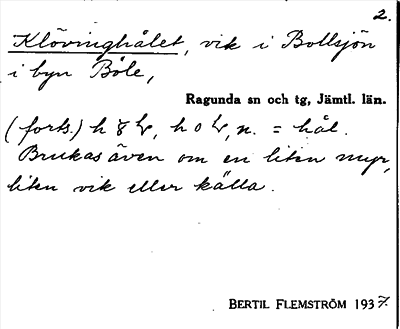 2.
Klövinghålet, vik i Bollsjön
i byn Böle,
Ragunda sn och tg, Jämtl. län.
(forts.) h, h o, n. = hål.
Brukas även om en liten myr,
liten vik eller källa.
BERTIL FLEMSTRÖM 1937.